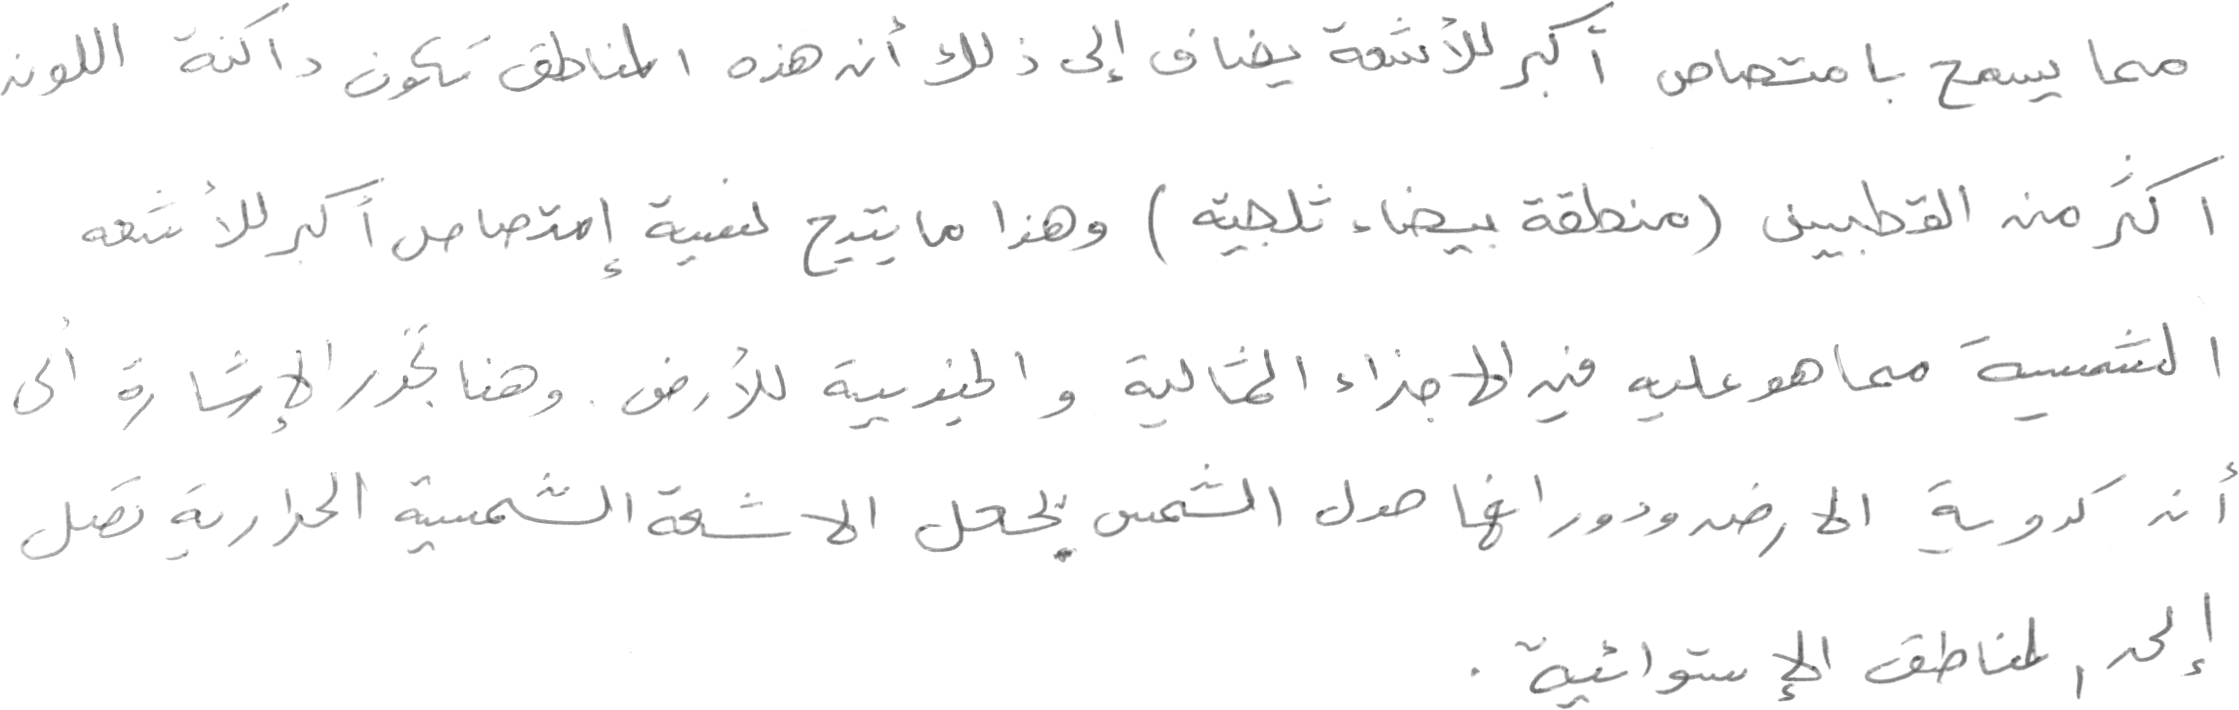 مما يسمح بامتصاص أكبر للأشعة يضاف إلى ذلك أن هذه المناطق تكون داكنة اللون
اكثر من القطبين (منطقة بيضاء ثلجية) وهذا ما يتيح لنسبة إمتصاص أكبر للأشعه
الشمسية مما هو عليه في الاجزاء الشمالية والجنوبية للأرض. وهنا تجدر الإشارة ألى
أن كروية الارض ودورانها حول الشمس يجعل الاشعة الشمسية الحرارية تصل
إلى المناطق الإستوائية.